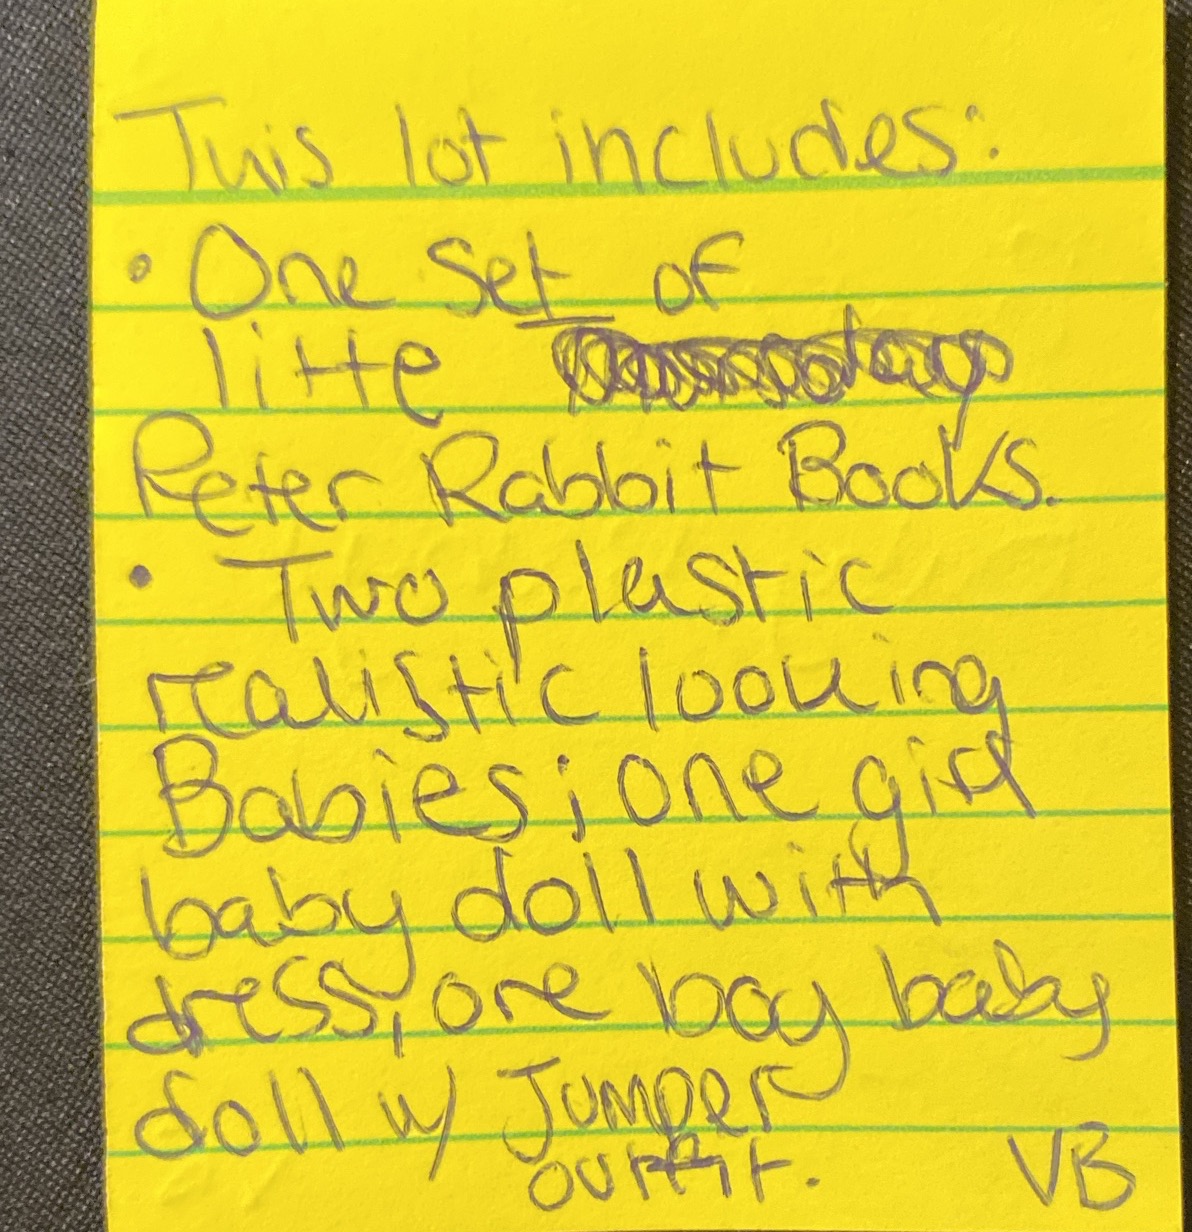 This lot includes:
• One set of
litte
Peter Rabbit Books.
• Two plastic
realistic looking
Babies; one girl
baby doll with
dress, one boy baby
doll w/ Jumper
outfit. VB